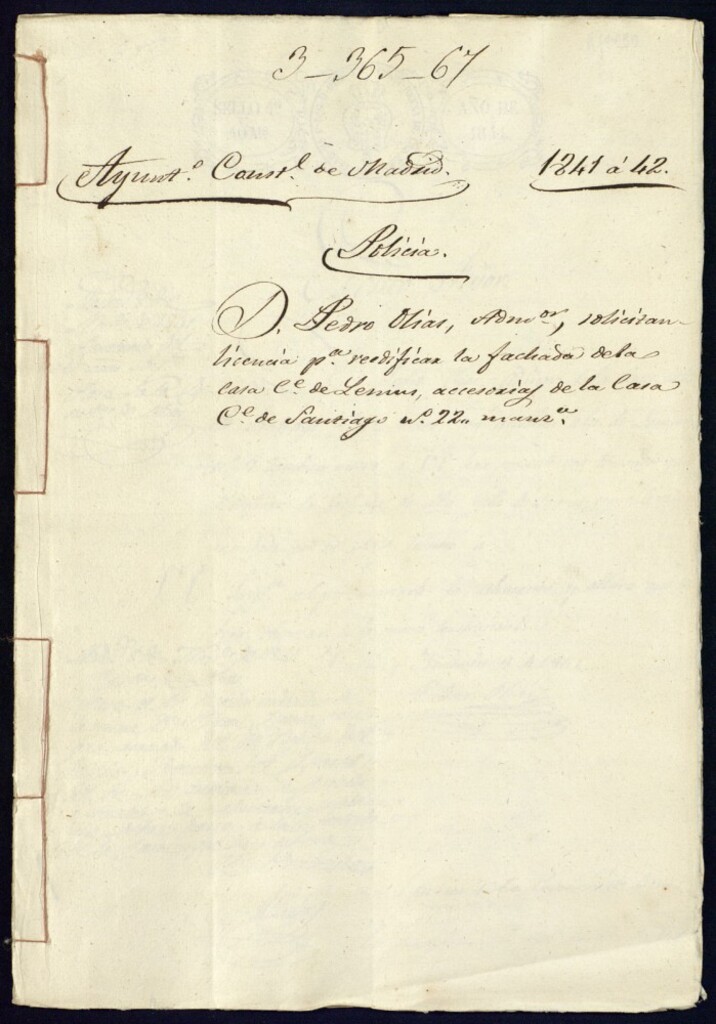 3-365-67
Ayunt.º Const.l de Madrid. 1841 á 42.
Policia.
D. Pedro Olias, Admor, solicitan-
licencia p.ra reedificar la fachada de la
casa C.e de Lemus, accesorias de la Casa
C.e de Santiago n.º 22 manz.a